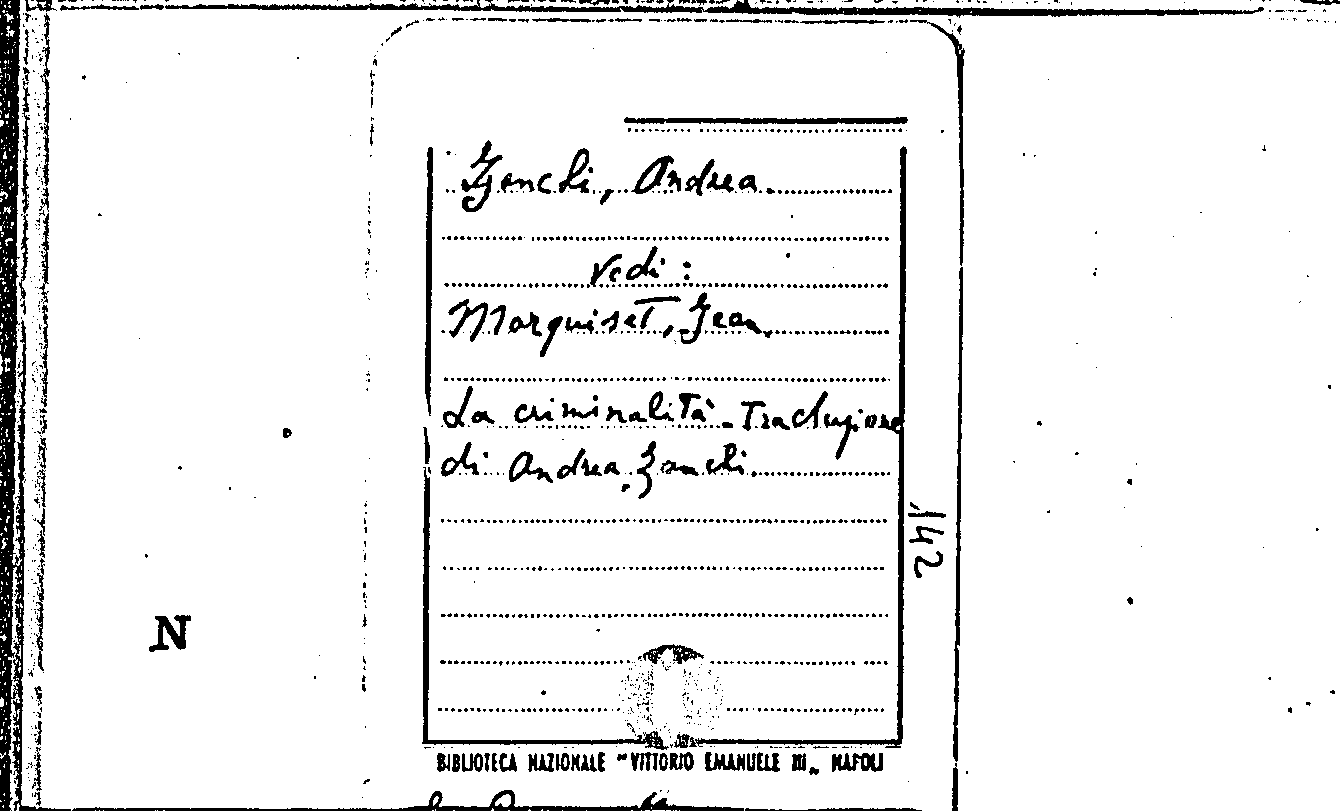 Zanchi, Andrea.
Vedi:
Marquiset, Jean.
La criminalità. Traduzione
di Andrea Zanchi.
142
N
BIBLIOTECA NAZIONALE "VITTORIO EMANUELE III„ NAPOLI